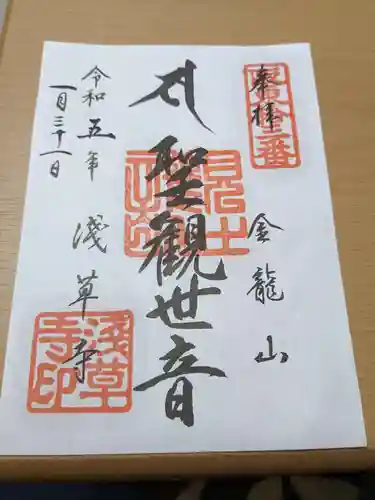 奉拝
金龍山
聖觀世音
浅草寺
令和五年
一月三十一日
浅草
寺印